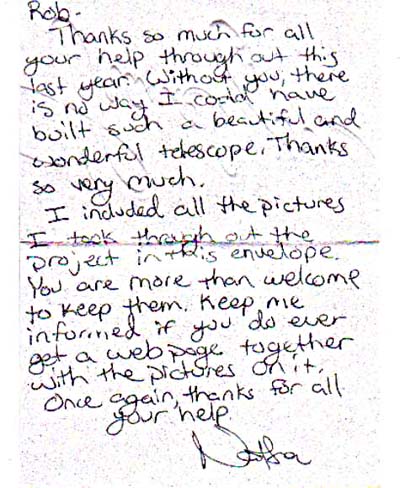 Rob-
Thanks so much for all
your help through out this
last year. Without you, there
is no way I could have
built such a beautiful and
wonderful telescope. Thanks
so very much.
I included all the pictures
I took through out the
project in this envelope.
You are more than welcome
to keep them. Keep me
informed if you do ever
get a web page together
with the pictures on it.
Once again, thanks for all
your help.